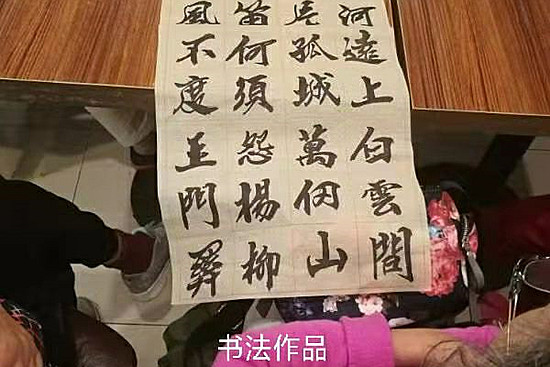 河遠上白雲間
片孤城萬仞山
笛何須怨楊柳
風不度玉門關
书法作品